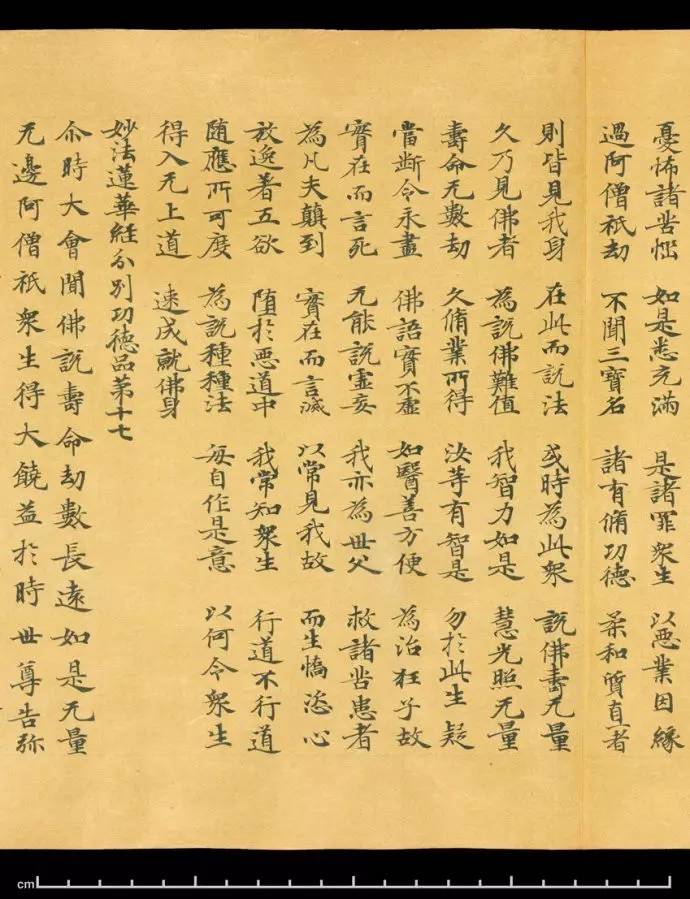 憂怖諸苦惱 如是悉充滿 是諸罪衆生 以惡業因緣
過阿僧祇劫 不聞三寶名 諸有脩功德 柔和質直者
則皆見我身 在此而說法 或時為此衆 說佛壽无量
久乃見佛者 為說佛難值 我智力如是 慧光照无量
壽命无數劫 久脩業所得 汝等有智是 勿於此生疑
當斷令永盡 佛語實不虛 如醫善方便 為治狂子故
實在而言死 无能說虛妄 我亦為世父 救諸苦患者
為凡夫顛到 實在而言滅 以常見我故 而生憍恣心
放逸著五欲 墮於惡道中 我常知衆生 行道不行道
随應所可度 為說種種法 每自作是意 以何令衆生
得入无上道 速成就佛身
妙法蓮華經分別功德品第十七
尒時大會聞佛說壽命劫數長遠如是无量
无邊阿僧祇衆生得大饒益於時世尊告弥
cm